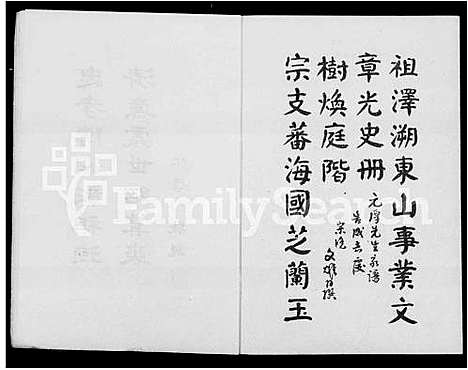 祖澤溯東山事業文
章光史冊
元浮先生家譜
告成志慶
樹煥庭階
宗晚
文雄拜撰
宗支蕃海國芝蘭玉
FamilySearch